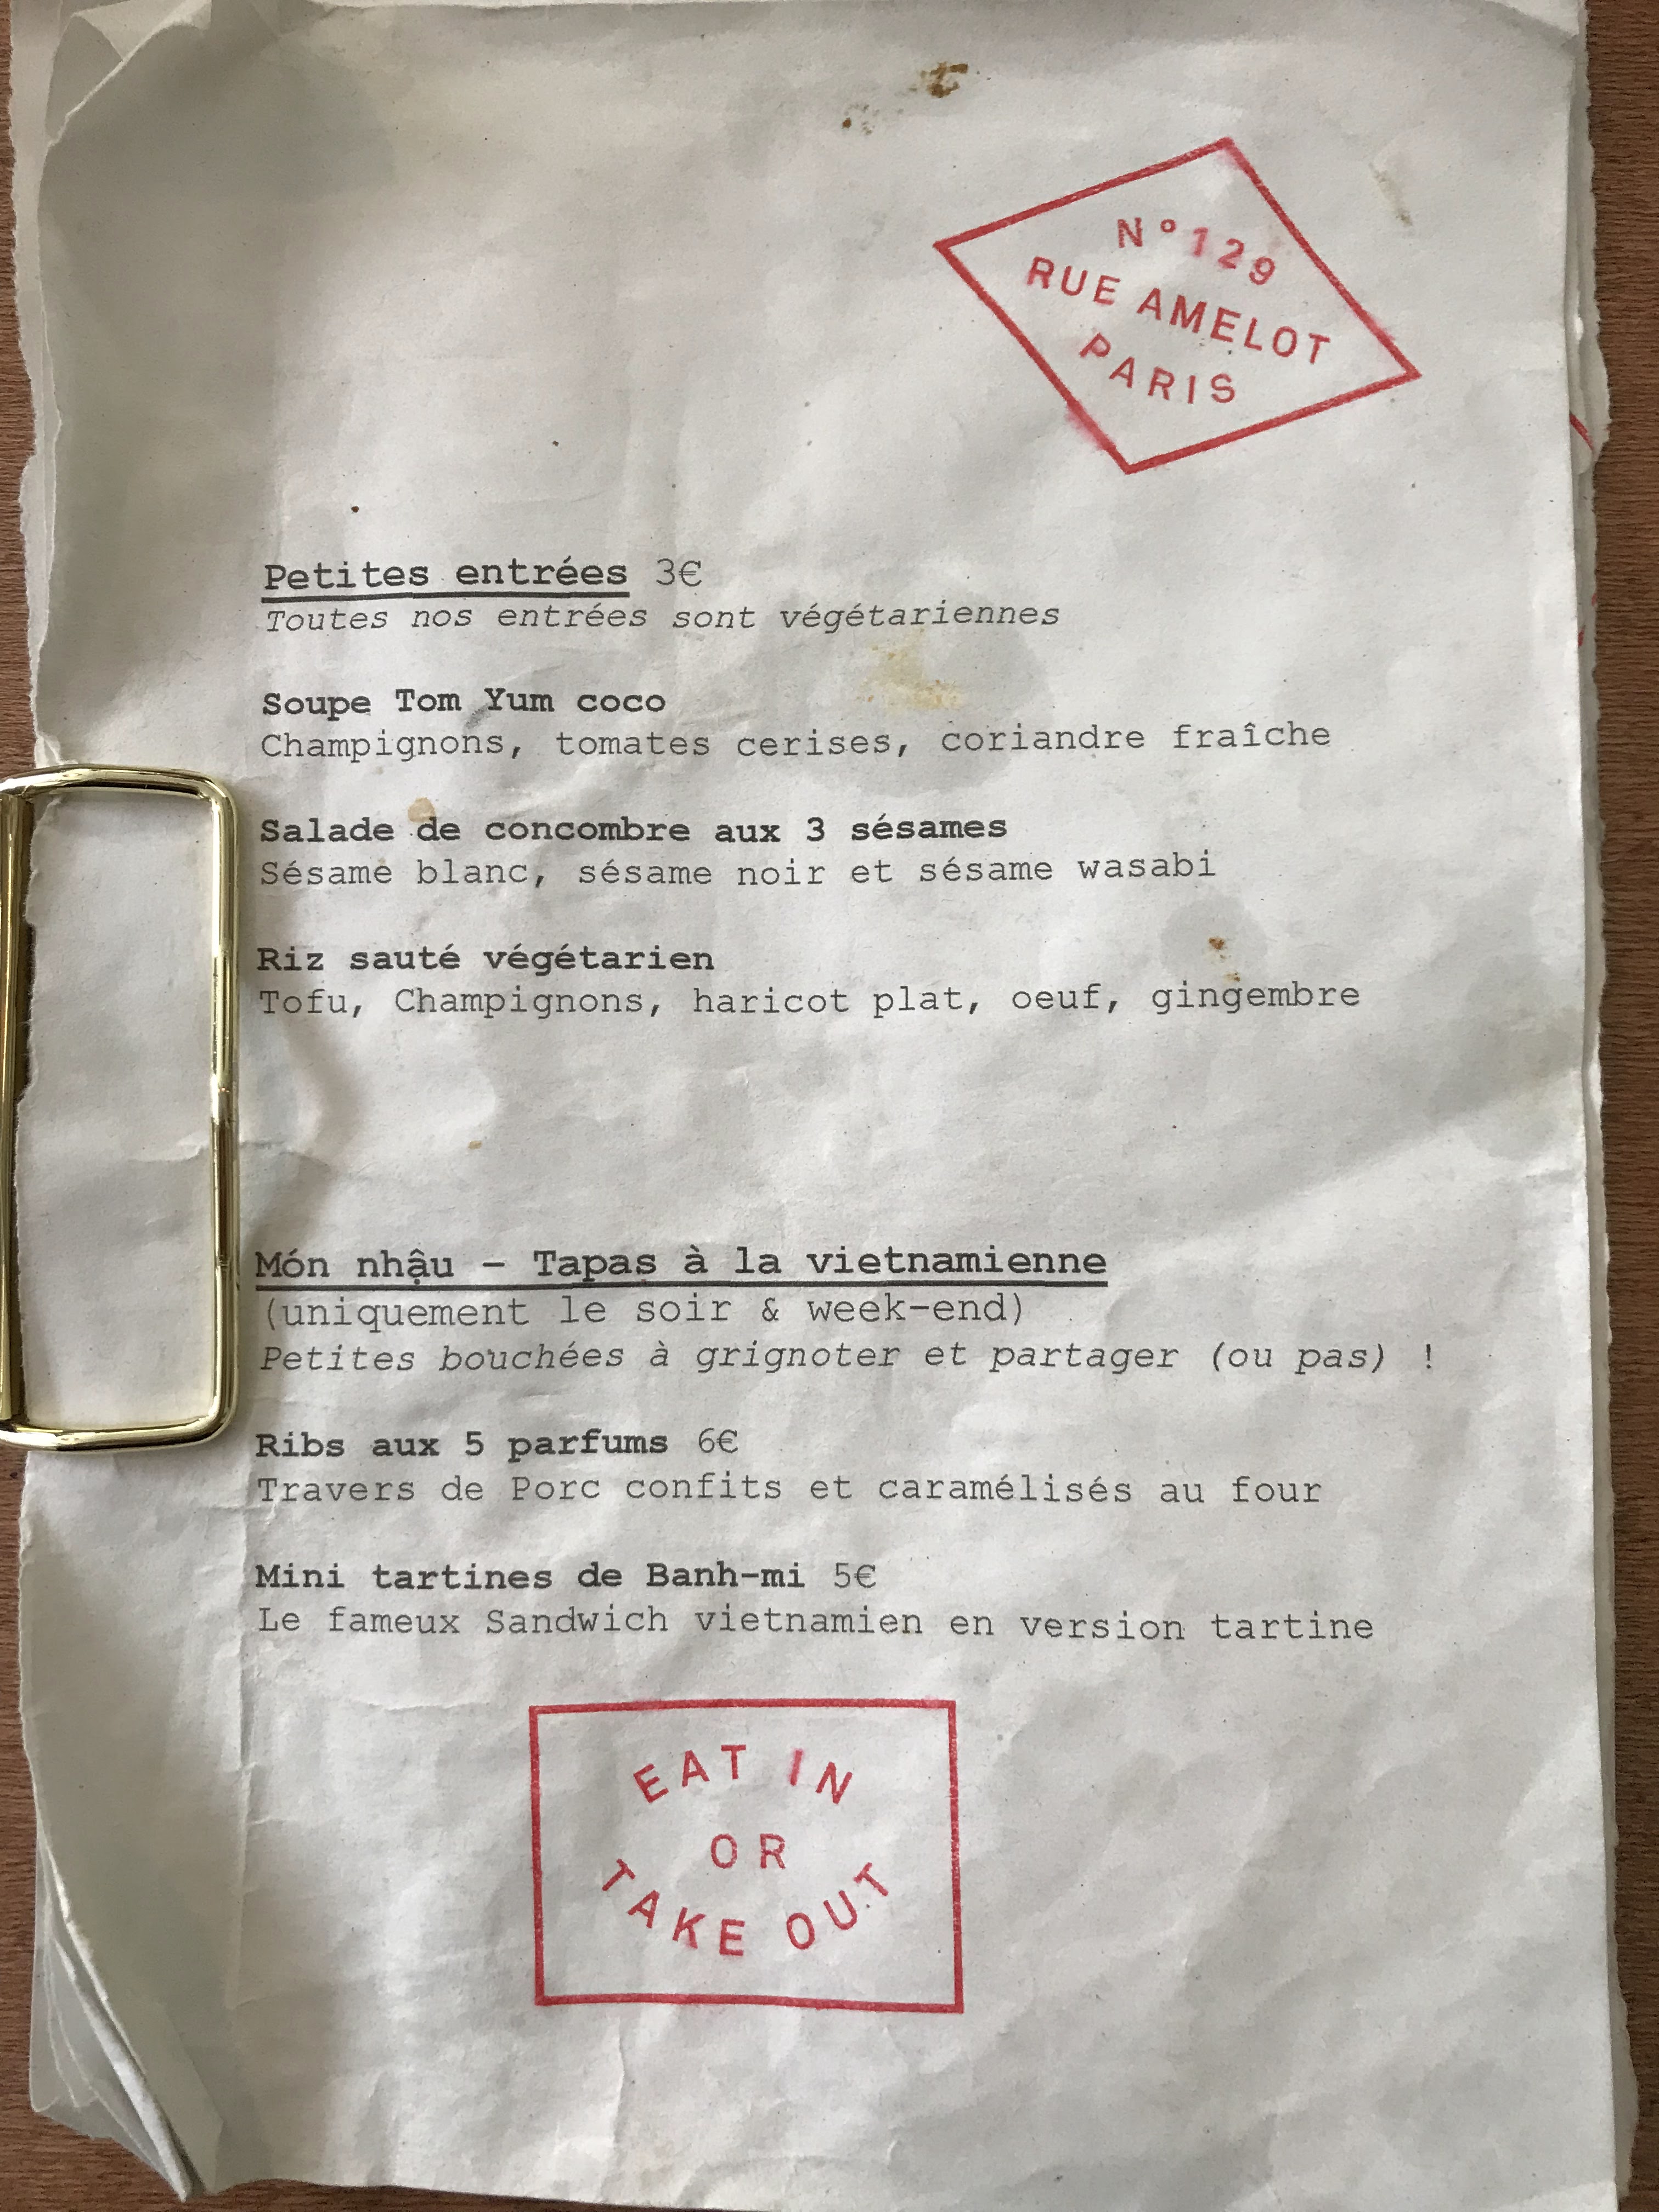 N°129
RUE AMELOT
PARIS
Petites entrées 3€
Toutes nos entrées sont végétariennes
Soupe Tom Yum coco
Champignons, tomates cerises, coriandre fraîche
Salade de concombre aux 3 sésames
Sésame blanc, sésame noir et sésame wasabi
Riz sauté végétarien
Tofu, Champignons, haricot plat, oeuf, gingembre
Món nhậu - Tapas à la vietnamienne
(uniquement le soir & week-end)
Petites bouchées à grignoter et partager (ou pas) !
Ribs aux 5 parfums 6€
Travers de Porc confits et caramélisés au four
Mini tartines de Banh-mi 5€
Le fameux Sandwich vietnamien en version tartine
EAT IN
OR
TAKE OUT